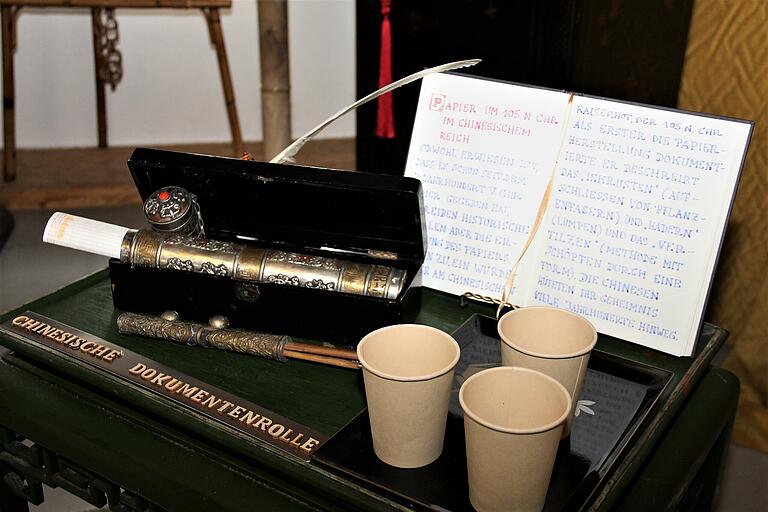 PAPIER UM 105 N CHR
IM CHINESISCHEM
REICH
OBWOHL ERWIESEN IST,
DASS ES SCHON SEIT DEM
JAHRHUNDERT V. CHR.
GEGEBEN HAT
HISTORISCHE
ABER DIE
DES PAPIERS
ZU WURDE
AM CHINESISCHEN
KAISERHOF, DER 105 N. CHR.
ALS ERSTER DIE PAPIER-
HERSTELLUNG DOKUMENT-
IERTE ER BESCHREIBT
DAS "(AUF-
SCHLIESSEN VON PFLANZ-
ENFASERN) UND "HADERN"
(LUMPEN) UND DAS "VER-
FILZEN" (METHODE MIT
SCHÖPFEN DURCH EINE
FORM). DIE CHINESEN
HÜTETEN IHR GEHEIMNIS
VIELE JAHRHUNDERTE HINWEG.
CHINESISCHE DOKUMENTENROLLE